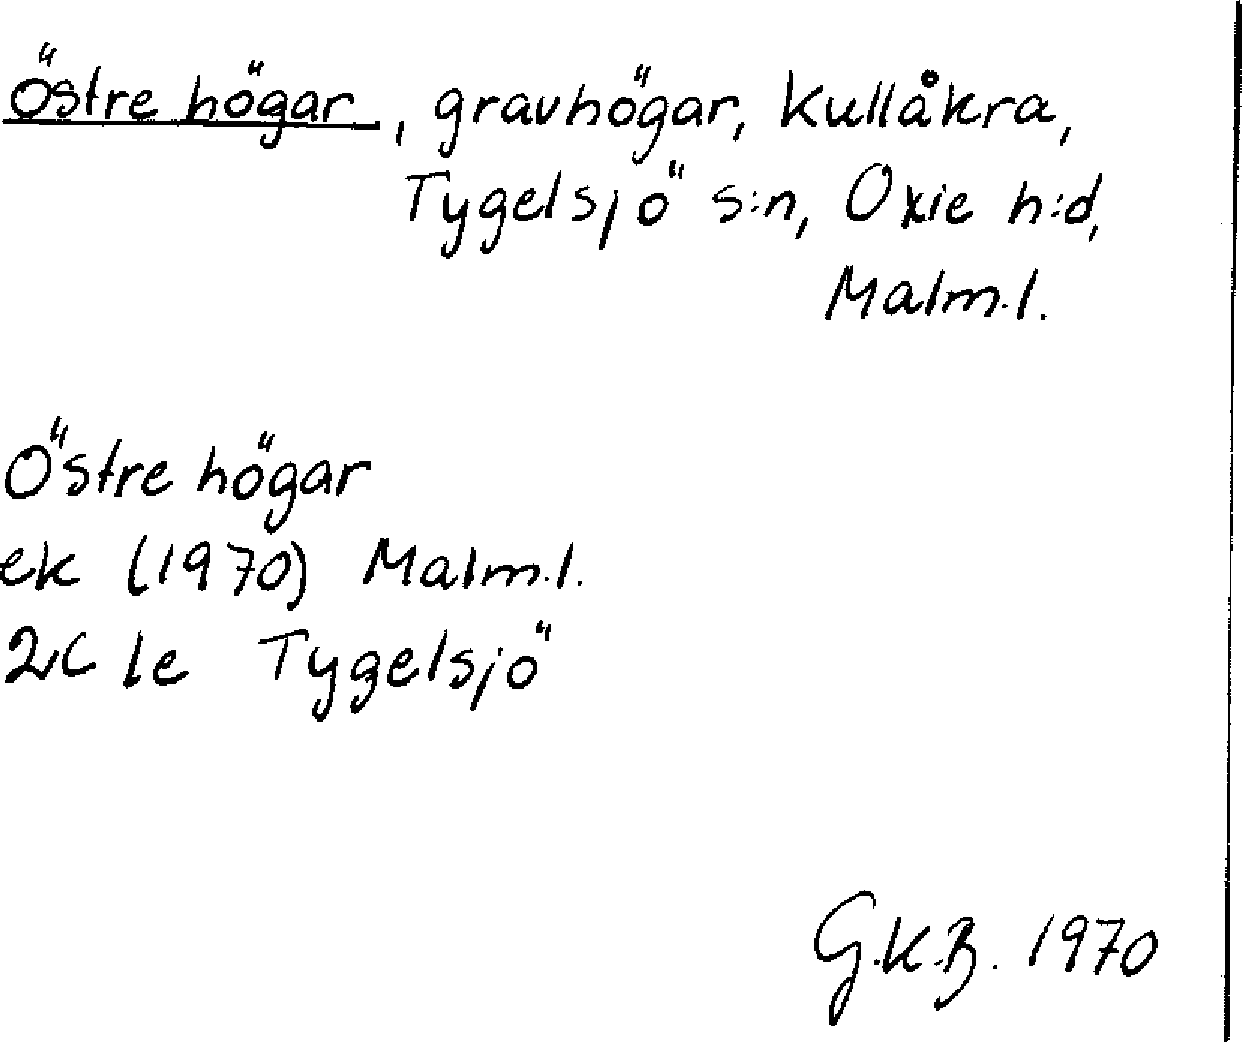 Östre högar, gravhögar, Kullåkra,
Tygelsjö s:n, Oxie h:d,
Malm.l.
Östre högar
ek (1970) Malm.l.
2C le Tygelsjö
G.K.B. 1970